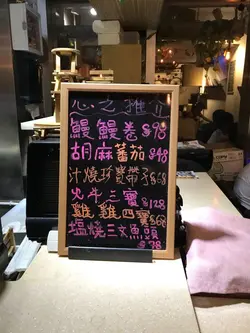 心之推介
鰻鰻卷 $98
胡麻蕃茄 $48
汁燒珍寶帶子 $68
火斗三寶 $128
雞雞四寶 $68
塩燒三文魚頭
$98